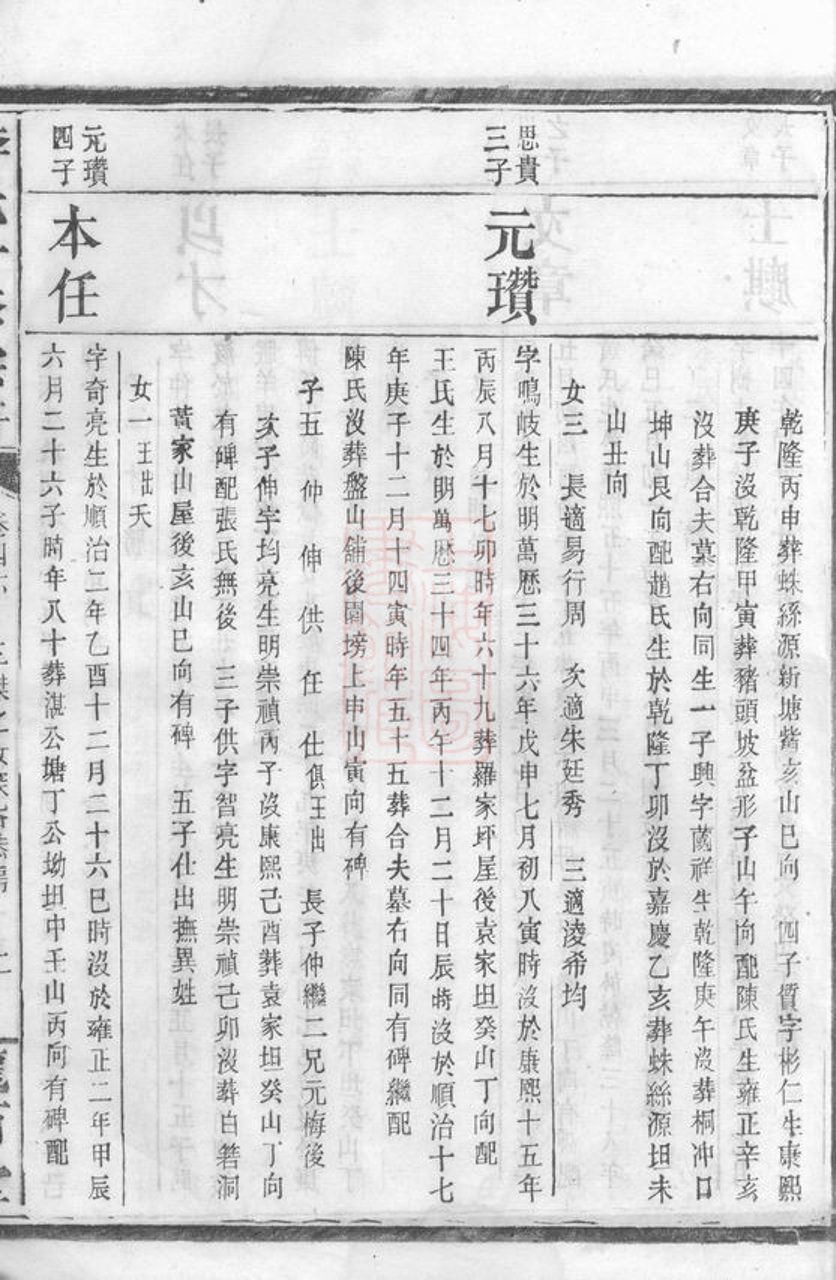 乾隆丙申葬蛛絲源新塘觜亥山巳向　四子質字彬仁生康熙
庚子沒乾隆甲寅葬豬頭坡盆形子山午向配陳氏生雍正辛亥
沒葬合夫墓右向同生一子興字藹祥生乾隆庚午沒葬桐冲口
坤山艮向配趙氏生於乾隆丁卯沒於嘉慶乙亥葬蛛絲源坦未
山丑向
女三　長適易行周　次適朱廷秀　三適淩希均
思貴
三子
元瓚
字鳴岐生於明萬歷三十六年戊申七月初八寅時沒於康熙十五年
丙辰八月十七卯時年六十九葬羅家坪屋後袁家坦癸山丁向配
王氏生於明萬歷三十四年丙午十二月二十日辰時沒於順治十七
年庚子十二月十四寅時年五十五葬合夫墓右向同有碑繼配
陳氏沒葬盤山舖後園塝上申山寅向有碑
子五　仲　伸　供　任　仕俱王出　長子仲繼二兄元梅後
次子伸字均亮生明崇禎丙子沒康熙己酉葬袁家坦癸山丁向
有碑配張氏無後　三子供字智亮生明崇禎己卯沒葬白箬洞
黃家山屋後亥山巳向有碑　五子仕出撫異姓
女一王出夭
元瓚
四子
本任
字奇亮生於順治二年乙酉十二月二十六巳時沒於雍正二年甲辰
六月二十六子時年八十葬湛公塘丁公坳坦中壬山丙向有碑配